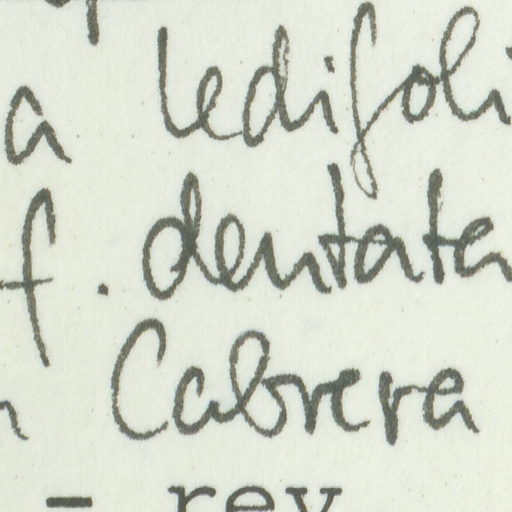 a ledifoli
f. dentata
Cabrera
- rev